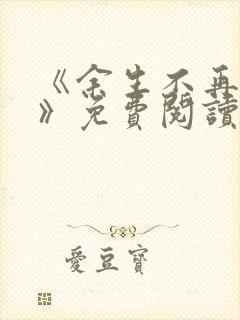 《余生不再
》免費閱讀
愛豆寶